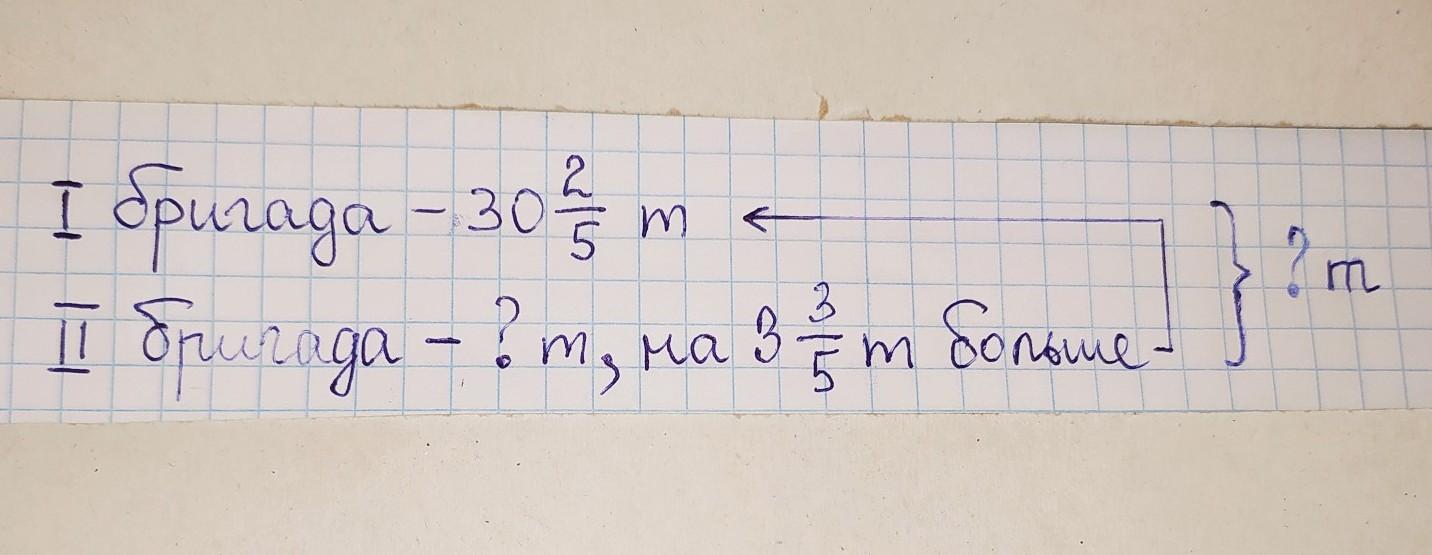 I бригада - 30 2/5 т
II бригада - ? т, на 3 3/5 т больше
? т